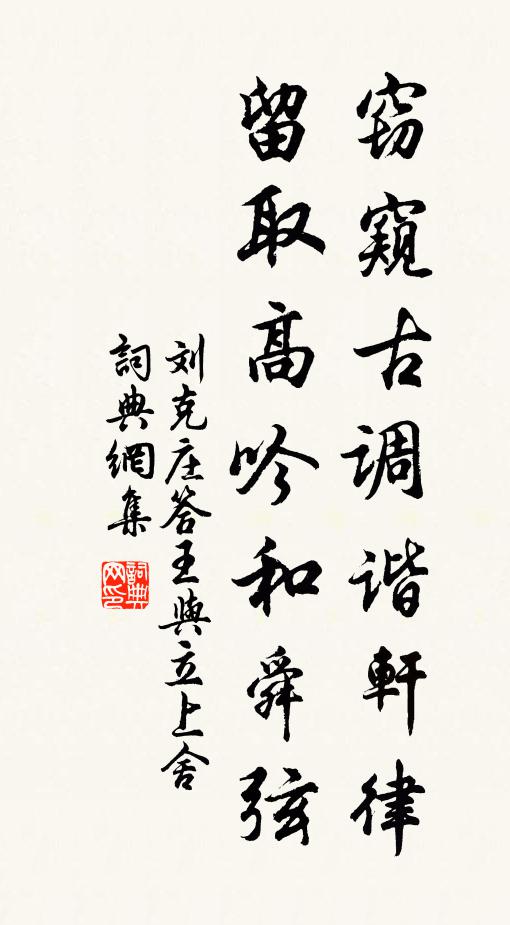 窃窥古调谐軒律
留取高吟和舜弦
刘克庄答王與立上舍
詞典網集
詞典网印